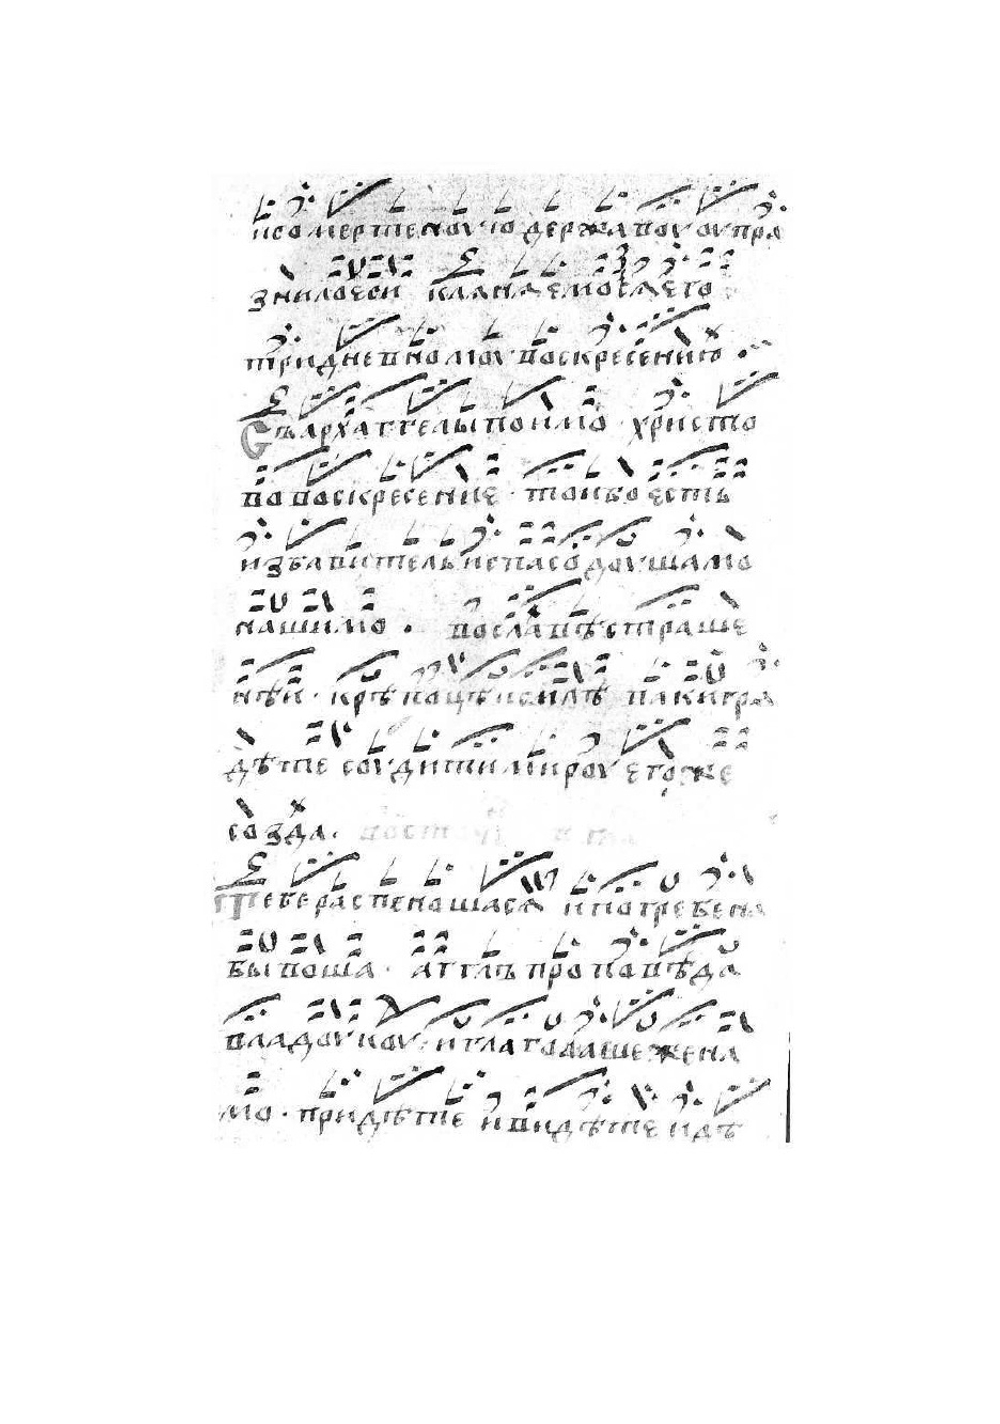 исомертеноую державоу оупра
знилоеси кланѧемосѧего
тридневномоу воскресению
Съархаггелыпоимо · христо
вовоскресение · тоибоесть
избавительиспасодоушамо
нашимо · вославѣстраше
нѣи · крѣпоцѣисилѣ пакигрѧ
дѣте соудитимироу егоже
созда ·
Тебераспеношасѧ ипогребена
бывоша · аггелъпроповѣда
владоукоу · иглаголашежена
мо · придѣте ивидѣте идѣ